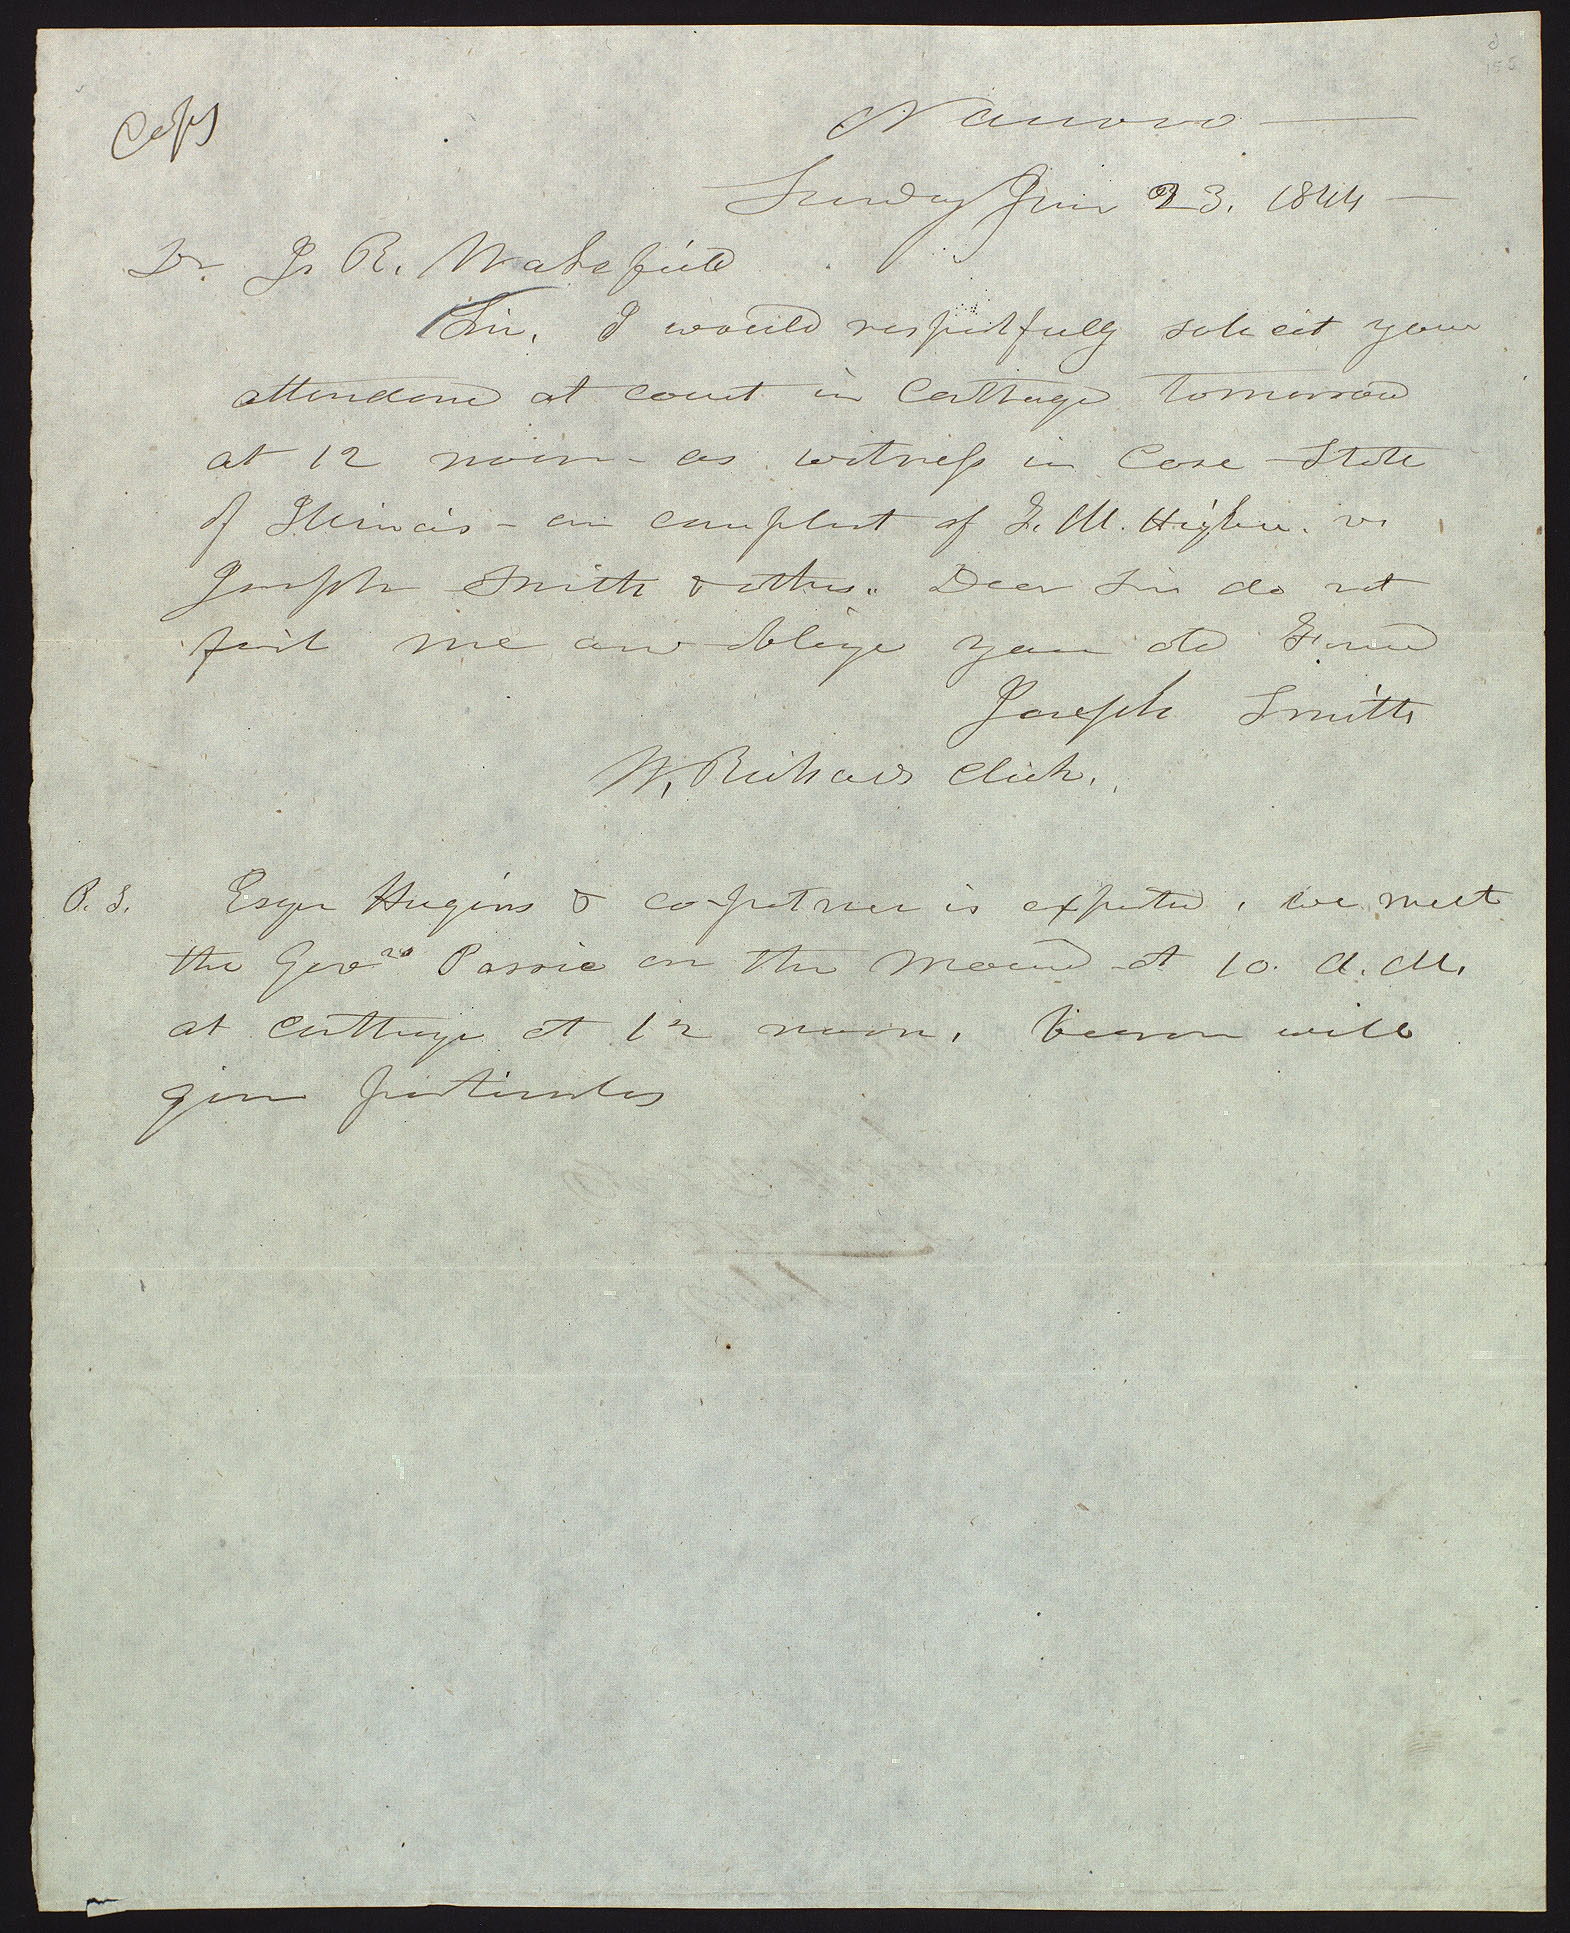 Copy
Nauvoo —
Sunday June 23. 1844 —
Dr. J. R. Wakefield
Sir, I would respectfully solicit your
attendance at court in Carthage tomorrow
at 12 noon - as witness in Case State
of Illinois - on complaint of F. M. Higbee. vs
Joseph Smith & others. Dear Sir do not
fail me and oblige your old Friend
Joseph Smith
W. Richards Clerk.
P. S. Esqr Hugins & co-partner is expected, we meet
the Govrs Possie on the Mound at 10. A.M.
at Carthage at 12 noon, bearer will
give particulars